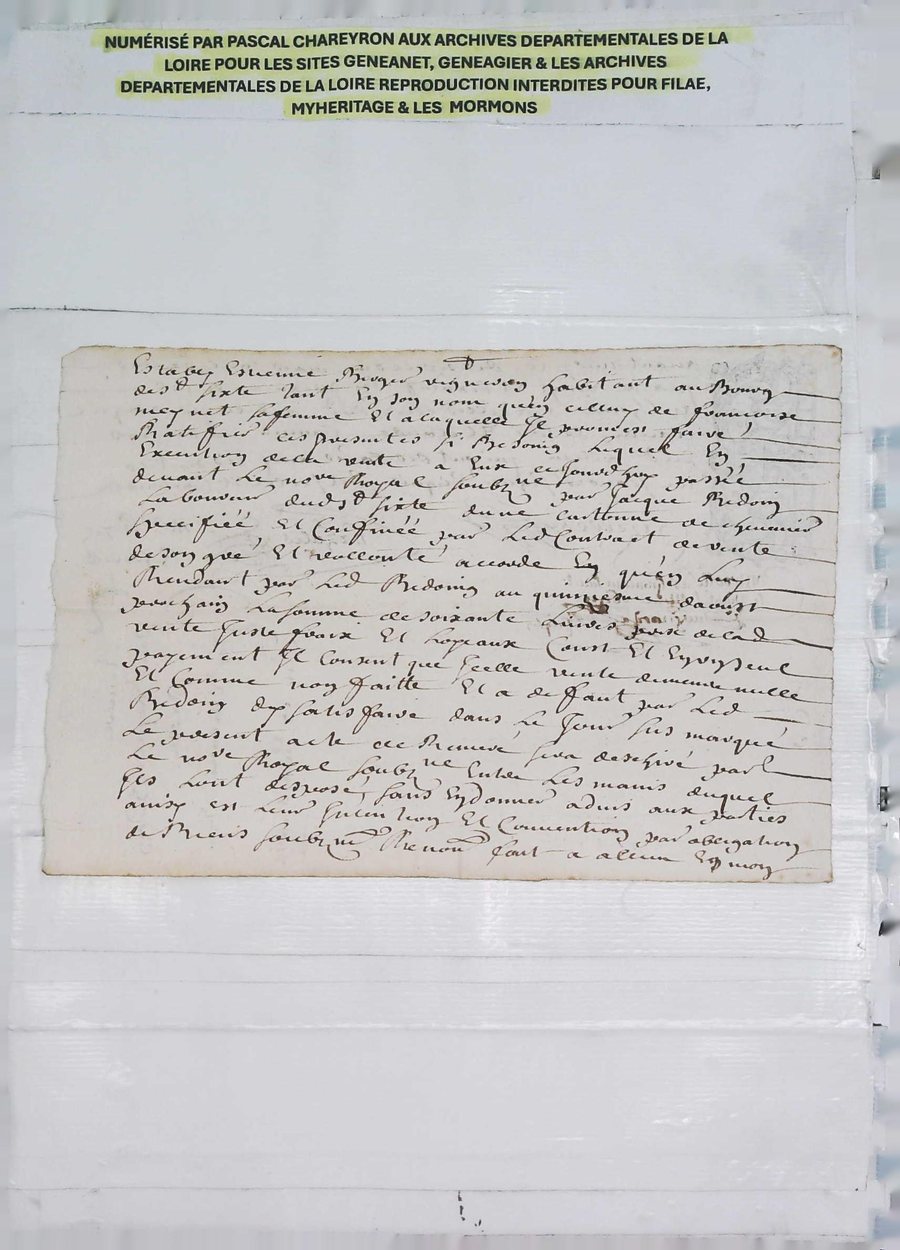 NUMÉRISÉ PAR PASCAL CHAREYRON AUX ARCHIVES DEPARTEMENTALES DE LA
LOIRE POUR LES SITES GENEANET, GENEAGIER & LES ARCHIVES
DEPARTEMENTALES DE LA LOIRE REPRODUCTION INTERDITES POUR FILAE,
MYHERITAGE & LES MORMONS
Estably Estienne vigneron habitant au Bourg
de st sixte tant en son nom qu'en celluy de francoise
meynet sa femme et a laquelle Il promet faire
Ratiffier ces presentes si Besoing lequel en
Execution de la vente a Eux ce jourdhuy passée
devant le nore Royal soubzne par Jacque Bedoin
laboureur dud st sixte d'une cartonne de chenevier
speciffiée Et Confinée par led Contract de vente
de son gré Et vollonté accorde que luy
Rendant par led Bedoin au quinziesme daoust
prochain la somme de soixante Livres prix de lad
vente juste fraix Et loyaux Coust Et
payement Il Consent que Icelle vente demeure nulle
Et Comme non faitte Et a deffaut par led
Bedoin dy satisfaire dans le jour sus marqué
Le present acte de Remeré sera par
le nore Royal soubzne Entre les mains duquel
Ils lont desposé sans donner advis aux parties
ainsy est leur Intention Et Convention par obligation
de Biens soubzmon Renon fait a alieu